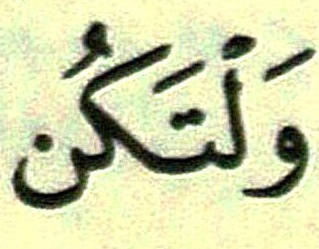 وَلْتَكُن